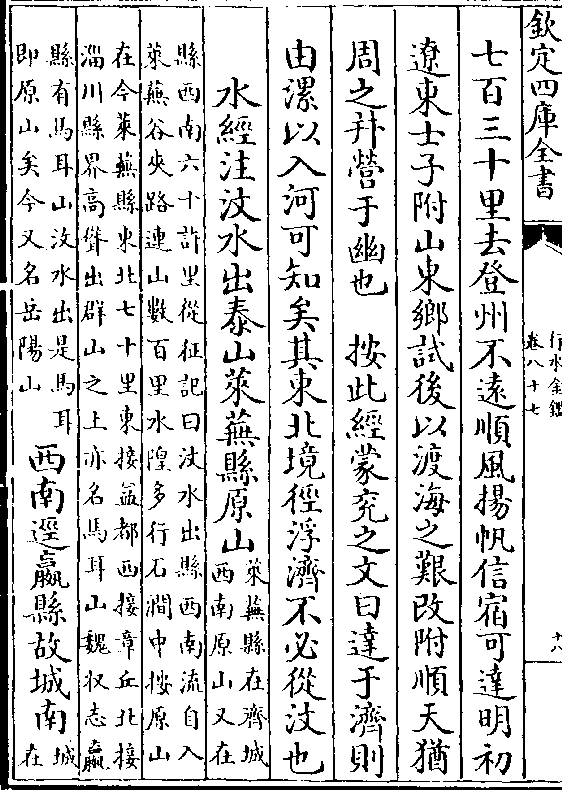 欽定四庫全書
行水金鑑
卷八十七
十八
七百三十里去登州不遠順風揚帆信宿可達明初
遼東士子附山東鄉試後以渡海之艱改附順天猶
周之幷營于幽也　按此經蒙兖之文曰達于濟則
由漯以入河可知矣其東北境徑浮濟不必從汶也
水經注汶水出泰山萊蕪縣原山
萊蕪縣在濟城
西南原山又在
縣西南六十許里從征記曰汶水出縣西南流自入
萊蕪谷夾路連山數百里水隍多行石澗中按原山
在今萊蕪縣東北七十里東接益都西接章丘北接
淄川縣界高聳出群山之上亦名馬耳山魏收志嬴
縣有馬耳山汶水出是馬耳
即原山矣今又名岳陽山
西南逕嬴縣故城南
城
在